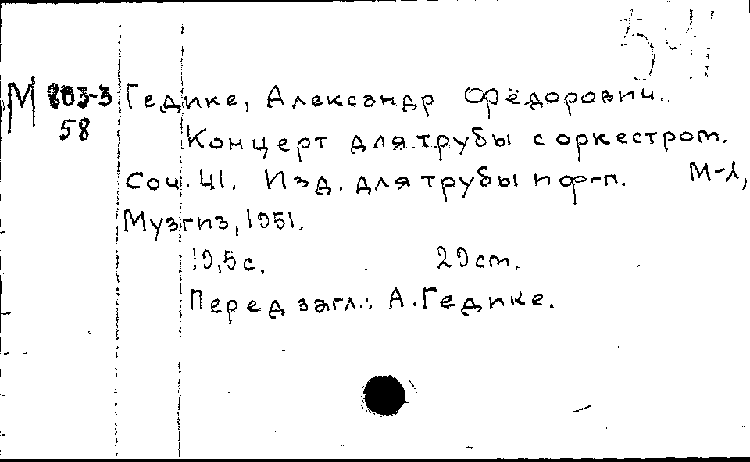 54
М 803-3 Гедике, Александр Фёдорович.
58 Концерт для трубы с оркестром.
Соч. 41. Изд. для трубы и ф-п. М-Л,
Музгиз, 1951.
19,5 с. 29 cm.
Перед загл.: А. Гедике.